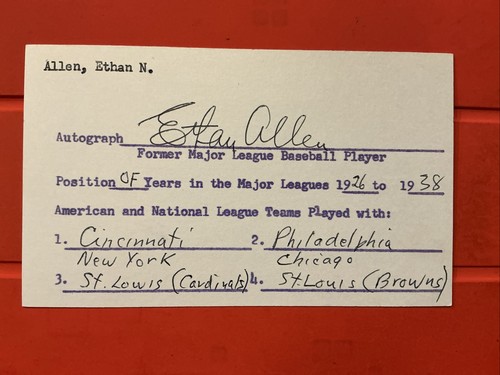 Allen, Ethan N.
Autograph Ethan Allen
Former Major League Baseball Player
Position OF Years in the Major Leagues 1926 to 1938
American and National League Teams Played with:
1. Cincinnati 2. Philadelphia
New York Chicago
3. St. Louis (Cardinals) 4. St. Louis (Browns)